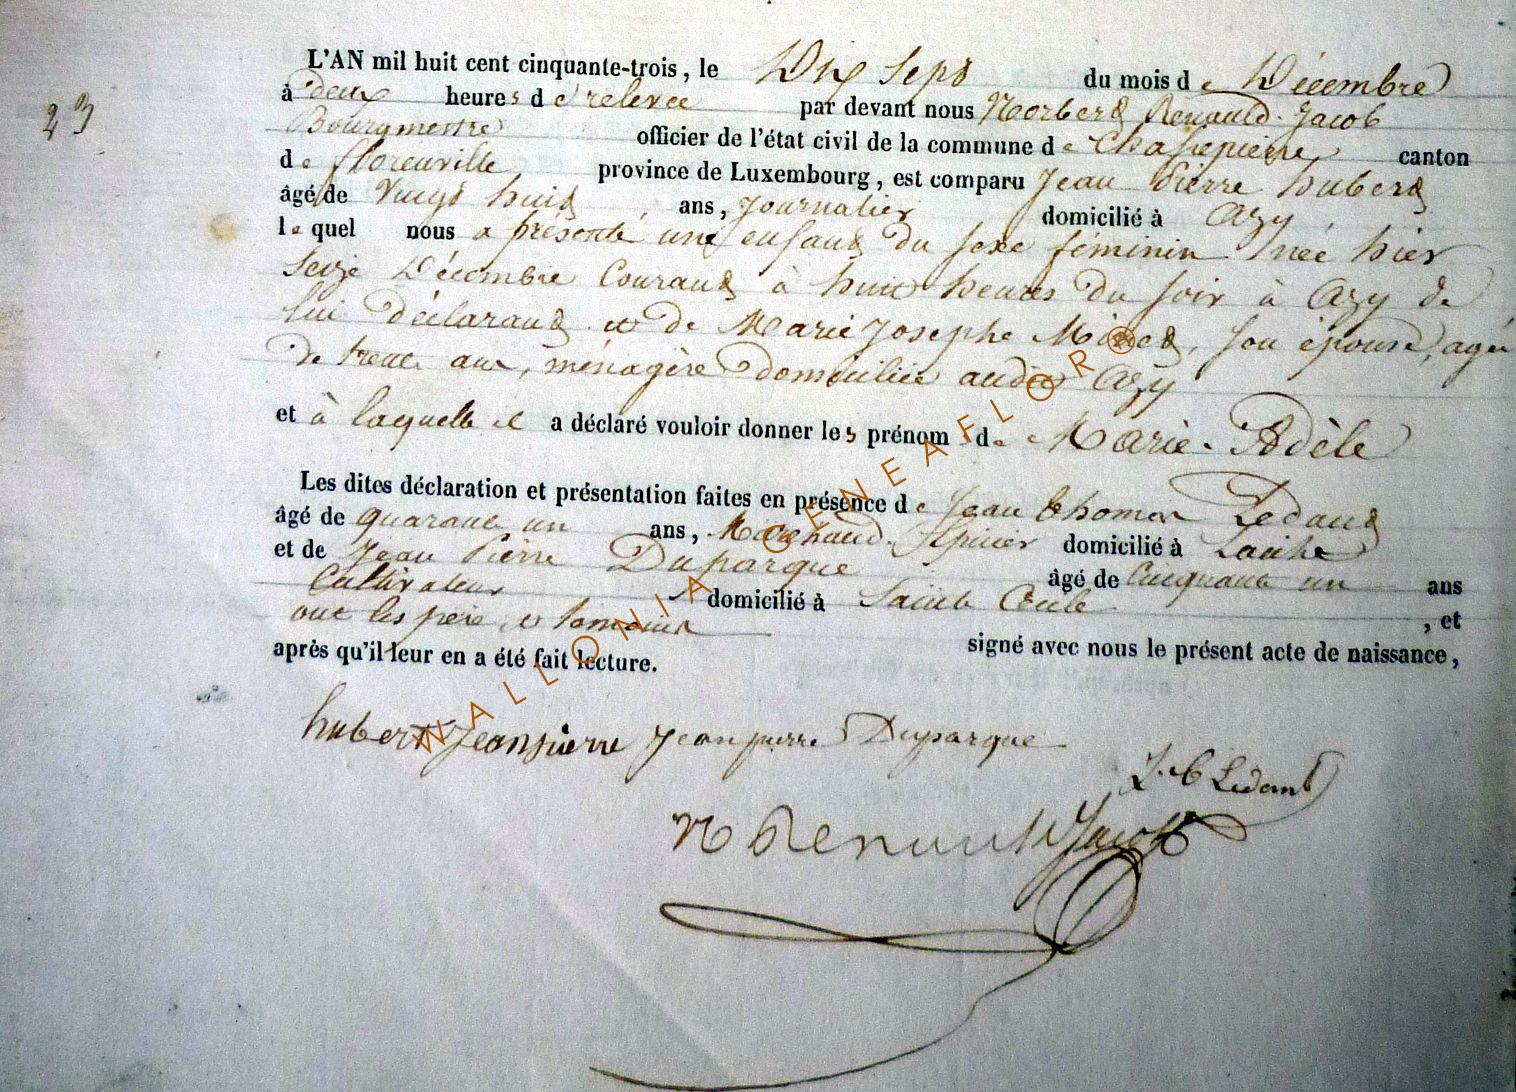 23
L'AN mil huit cent cinquante-trois, le Dix Sept du mois de Décembre
à deux heures de relevée par devant nous Norbert Renauld-Jacob
Bourgmestre officier de l'état civil de la commune de Chassepierre canton
de florenville province de Luxembourg, est comparu Jean Pierre hubert
âgé de Vingt huit ans, Journalier domicilié à Azy
lequel nous a présenté une enfant du sexe féminin née hier
Seize Décembre Courant à huit heures du soir à Azy de
lui déclarant et de Marie Josephe, son épouse, agée
de trente ans, ménagère domiciliée audit Azy
et à laquelle il a déclaré vouloir donner les prénoms de Marie-Adèle
Les dites déclaration et présentation faites en présence de Jean thomas Ledant
âgé de quarante un ans, Marchand Epicier domicilié à Laiche
et de Jean Pierre Duparque âgé de Cinquante un ans
Cultivateur domicilié à Sainte Cécile, et
ont les père et témoins signé avec nous le présent acte de naissance,
après qu'il leur en a été fait lecture.
hubert Jeanpierre Jean pierre Duparque
J. t Ledant
N Renauld Jacob
WALLONIA GENEAFLOR®